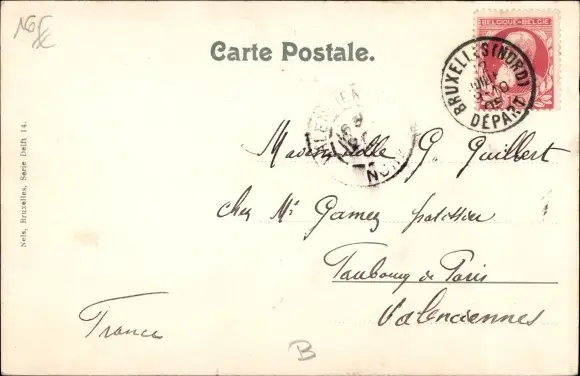 BELGIQUE-BELGIE
Carte Postale.
BRUXELLES (NORD)
DEPART
NORD
Mademoiselle G. Guilbert
chez Mr Gamez patissier
Faubourg de Paris
Valenciennes
France
B
Nels, Bruxelles, Serie Delft 14.